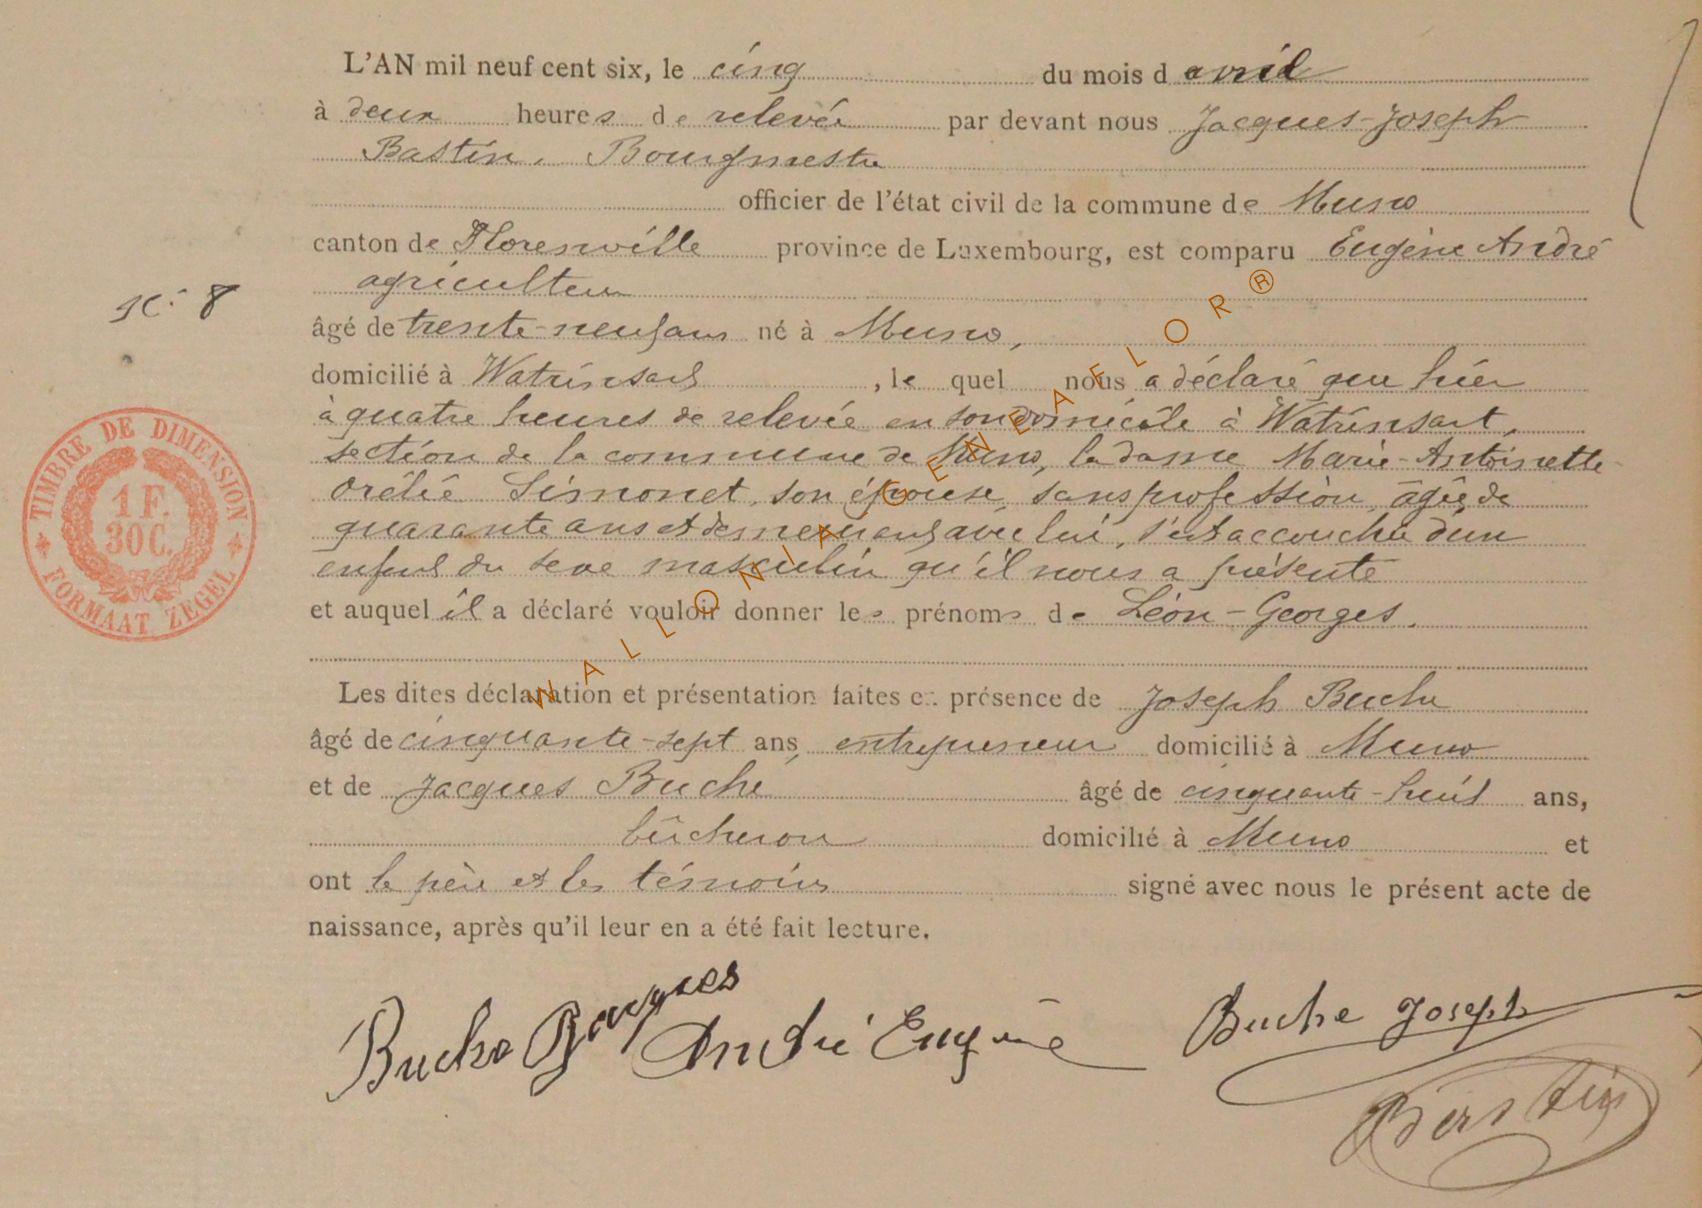 L'AN mil neuf cent six, le cinq du mois d avril
à deux heures de relevée par devant nous Jacques-Joseph
Bastin, Bourgmestre
officier de l'état civil de la commune de Muno
canton de Florenville province de Luxembourg, est comparu Eugène André
agriculteur
N° 8
âgé de trente-neuf ans né à Muno,
domicilié à Watrinsart, le quel nous a déclaré que hier
à quatre heures de relevée en son domicile à Watrinsart,
section de la commune de Muno, la dame Marie-Antoinette
Orélie Simonet, son épouse, sans profession, âgée de
quarante ans et demeurant avec lui, s'est accouchée d'un
enfant du sexe masculin qu'il nous a présenté
et auquel il a déclaré vouloir donner les prénoms de Léon-Georges.
Les dites déclaration et présentation faites en présence de Joseph Buche
âgé de cinquante-sept ans, entrepreneur domicilié à Muno
et de Jacques Buche âgé de cinquante-huit ans,
bûcheron domicilié à Muno et
ont le père et les témoins signé avec nous le présent acte de
naissance, après qu'il leur en a été fait lecture.
Buche Jacques André Eugène Buche Joseph
Bastin
TIMBRE DE DIMENSION
1 F.
30 C.
FORMAAT ZEGEL
WALLONIA GENEAFLOR®